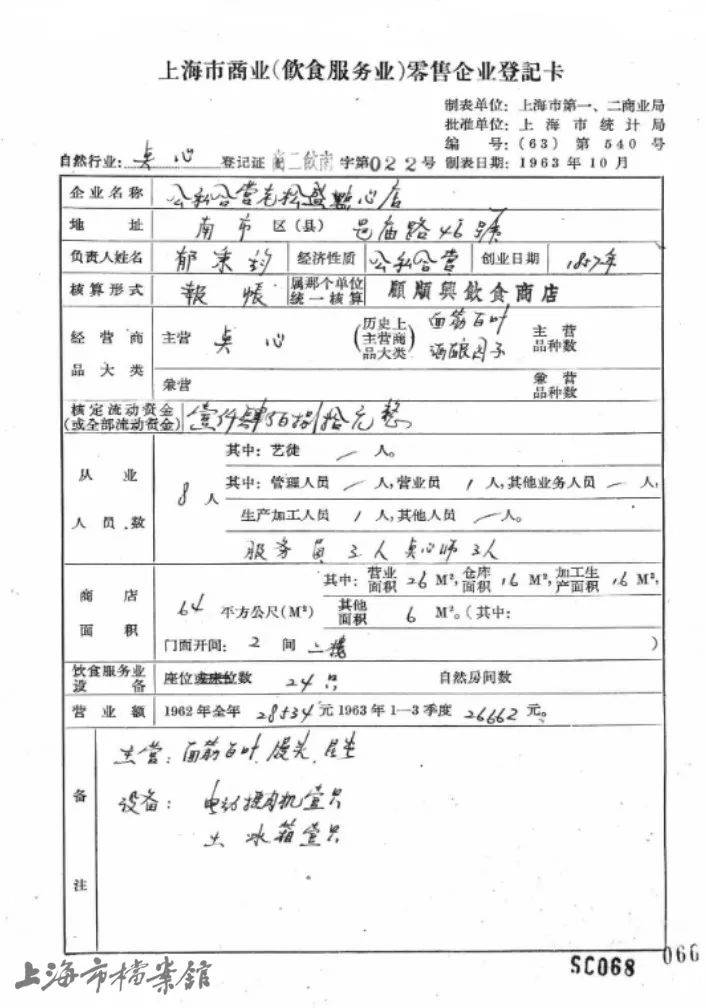 上海市商业(飲食服务业)零售企业登記卡
制表单位：上海市第一、二商业局
批准单位：上海市统计局
编号：(63)第540号
自然行业：点心 登记证 商二飲南 字第022号 制表日期：1963年10月
企业名称 公私合营老松盛點心店
地址 南市 区(县) 邑庙路46號
负责人姓名 郁秉鈞 经济性质 公私合营 创业日期 1857年
核算形式 報帳 属那个单位统一核算 顧順興飲食商店
经营商品大类 主营 点心 (历史上主营商品大类) 面筋百叶 酒酿园子 主营品种数
兼营 兼营品种数
核定流动资金(或全部流动资金) 壹仟肆佰捌拾元整
从业人员数 8人 其中：艺徒 / 人。
其中：管理人员 / 人,营业员 1 人,其他业务人员 / 人,
生产加工人员 1 人,其他人员 / 人。
服务员 3人 点心师 3人
商店面积 64 平方公尺(M²) 其中：营业面积 26 M²,仓库面积 16 M²,加工生产面积 16 M²,
其他面积 6 M²。(其中：
门面开间：2 间 二楼 )
饮食服务业设备 座位或床位数 24只 自然房间数
营业额 1962年全年 28534元 1963年1—3季度 26662元。
备注
主营：面筋百叶、馒头、
设备：电动 肉机壹只
土冰箱壹只
上海市檔案館
SC068
066